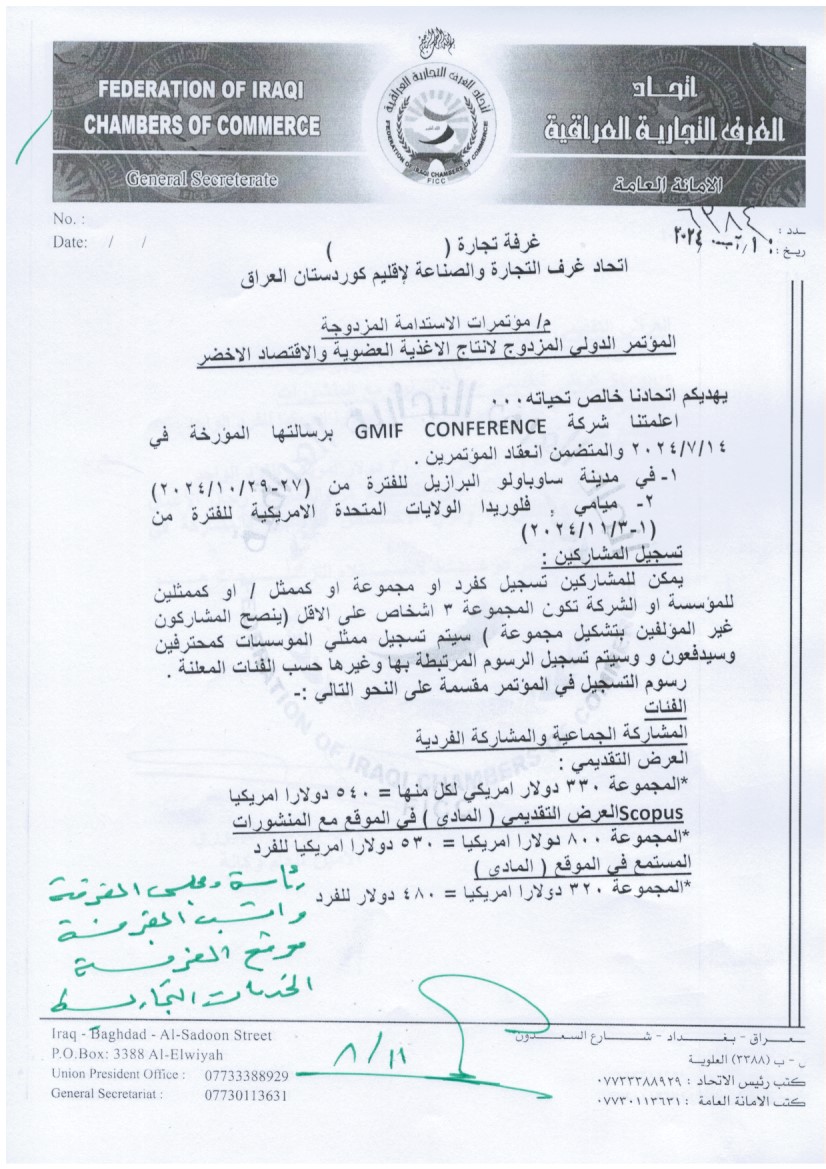 FEDERATION OF IRAQI
CHAMBERS OF COMMERCE
General Secreterate
اتحاد
الغرف التجارية العراقية
الامانة العامة
اتحاد الغرف التجارية العراقية
FEDERATION OF IRAQI CHAMBERS OF COMMERCE
FICC
No. :
Date: / /
ـدد : ٦٣٨٤
ريخ : ١٠/آب ٢٠٢٤
غرفة تجارة ( )
اتحاد غرف التجارة والصناعة لإقليم كوردستان العراق
م/ مؤتمرات الاستدامة المزدوجة
المؤتمر الدولي المزدوج لانتاج الاغذية العضوية والاقتصاد الاخضر
يهديكم اتحادنا خالص تحياته ...
اعلمتنا شركة GMIF CONFERENCE برسالتها المؤرخة في
٢٠٢٤/٧/١٤ والمتضمن انعقاد المؤتمرين .
١- في مدينة ساوباولو البرازيل للفترة من (٢٧-٢٠٢٤/١٠/٢٩)
٢- ميامي , فلوريدا الولايات المتحدة الامريكية للفترة من
(١-٢٠٢٤/١١/٣)
تسجيل المشاركين :
يمكن للمشاركين تسجيل كفرد او مجموعة او كممثل / او كممثلين
للمؤسسة او الشركة تكون المجموعة ٣ اشخاص على الاقل (ينصح المشاركون
غير المؤلفين بتشكيل مجموعة ) سيتم تسجيل ممثلي الموسسات كمحترفين
وسيدفعون و وسيتم تسجيل الرسوم المرتبطة بها وغيرها حسب الفئات المعلنة .
رسوم التسجيل في المؤتمر مقسمة على النحو التالي :-
الفئات
المشاركة الجماعية والمشاركة الفردية
العرض التقديمي :
*المجموعة ٣٣٠ دولار امريكي لكل منها = ٥٤٠ دولارا امريكيا
Scopusالعرض التقديمي ( المادي ) في الموقع مع المنشورات
*المجموعة ٨٠٠ دولارا امريكيا = ٥٣٠ دولارا امريكيا للفرد
المستمع في الموقع ( المادي )
*المجموعة ٣٢٠ دولارا امريكيا = ٤٨٠ دولار للفرد
رئاسة ومجلس الغرفة
الغرفة
موقع الغرفة
الخدمات التجارية
٨/١١
Iraq - Baghdad - Al-Sadoon Street
P.O.Box: 3388 Al-Elwiyah
Union President Office : 07733388929
General Secretariat : 07730113631
ـعراق - بغداد - شارع السعدون
ص - ب (٣٣٨٨) العلوية
كتب رئيس الاتحاد : ٠٧٧٣٣٣٨٨٩٢٩
كتب الامانة العامة : ٠٧٧٣٠١١٣٦٣١